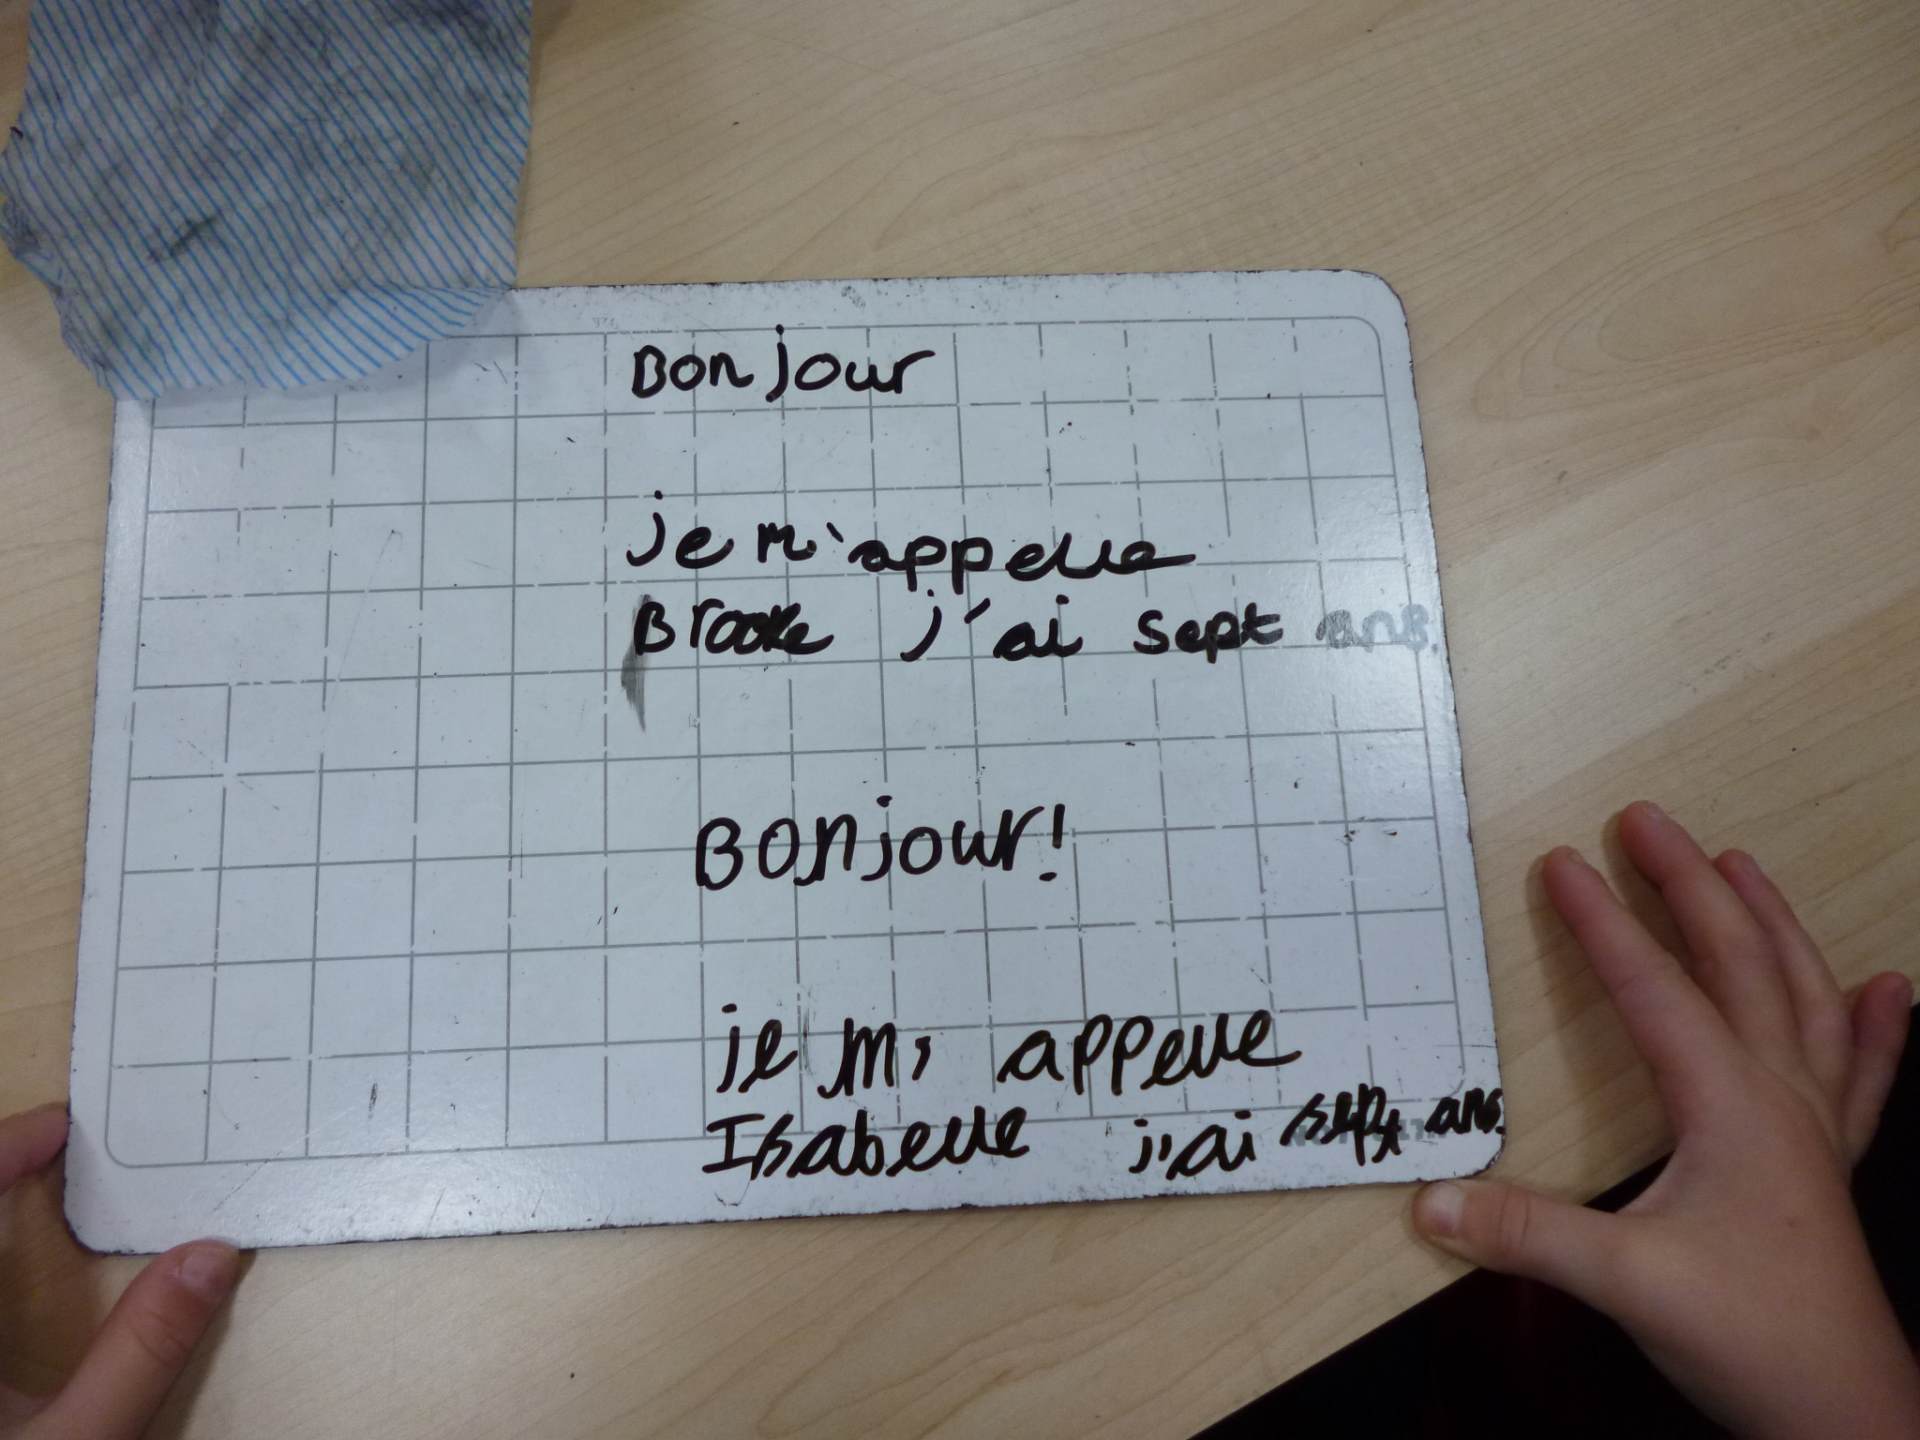 Bonjour
je m'appelle
Brooke j'ai sept ans.
Bonjour!
je m, appelle
Isabelle j,ai sept ans.